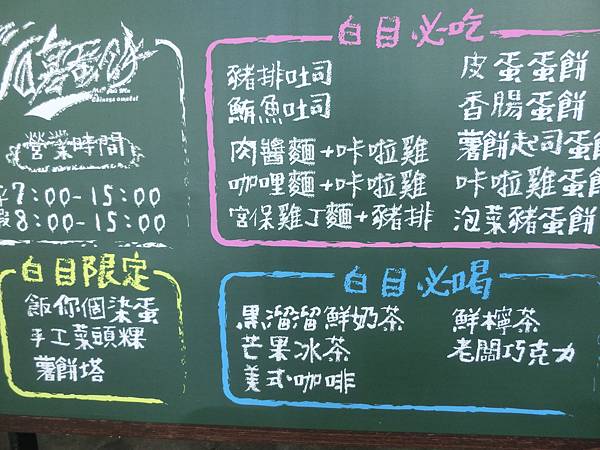 營業時間
平7:00-15:00
假8:00-15:00
白目限定
飯你個柒蛋
手工菜頭粿
薯餅塔
白目必吃
豬排吐司
鮪魚吐司
肉醬麵+咔啦雞
咖哩麵+咔啦雞
宮保雞丁麵+豬排
皮蛋蛋餅
香腸蛋餅
薯餅起司蛋餅
咔啦雞蛋餅
泡菜豬蛋餅
白目必喝
黑溜溜鮮奶茶
芒果冰茶
美式咖啡
鮮檸茶
老闆巧克力